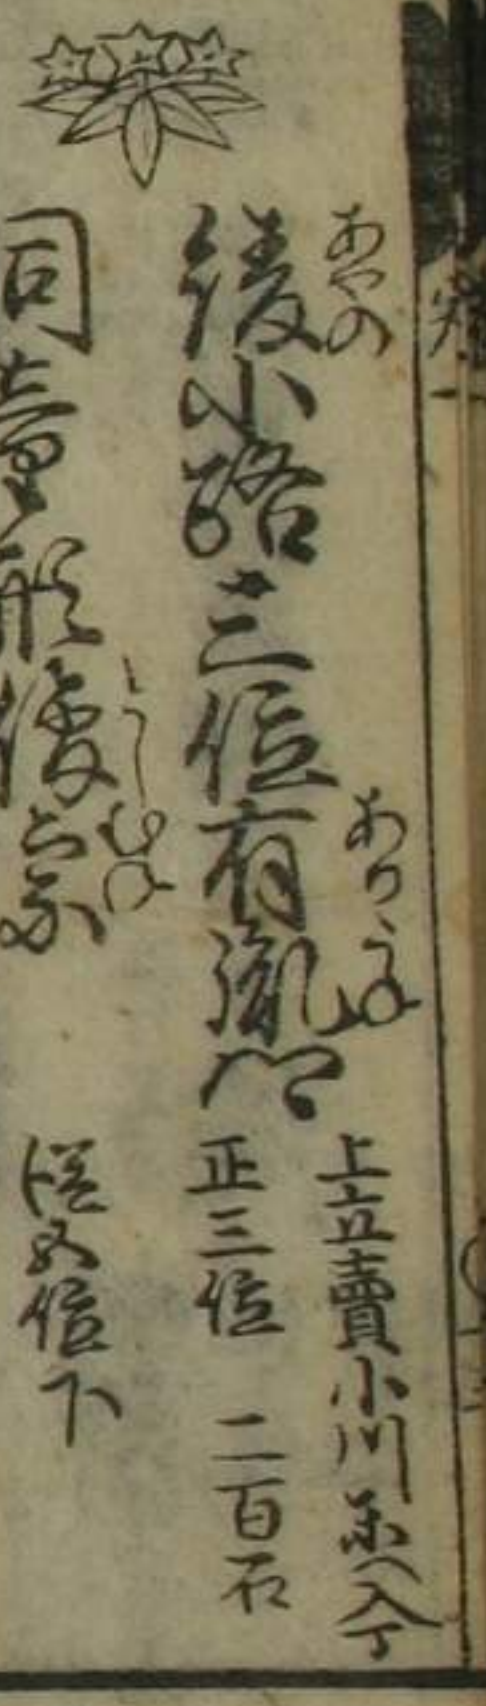 あやの
綾小路三位有胤卿
ありかね
上立賣小川東へ入丁
正三位 二百石
同童形俊宗
としむね
従五位下